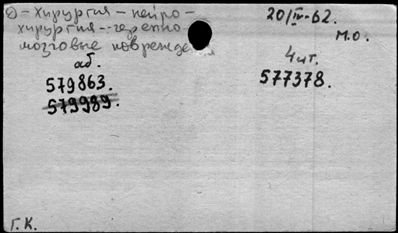 Ⓓ – хирургия – нейро-
хирургия – черепно-
мозговые поврежде
аб.
579863.
579989.
20/IV-62.
м.о.
4 шт.
577378.
Г.К.